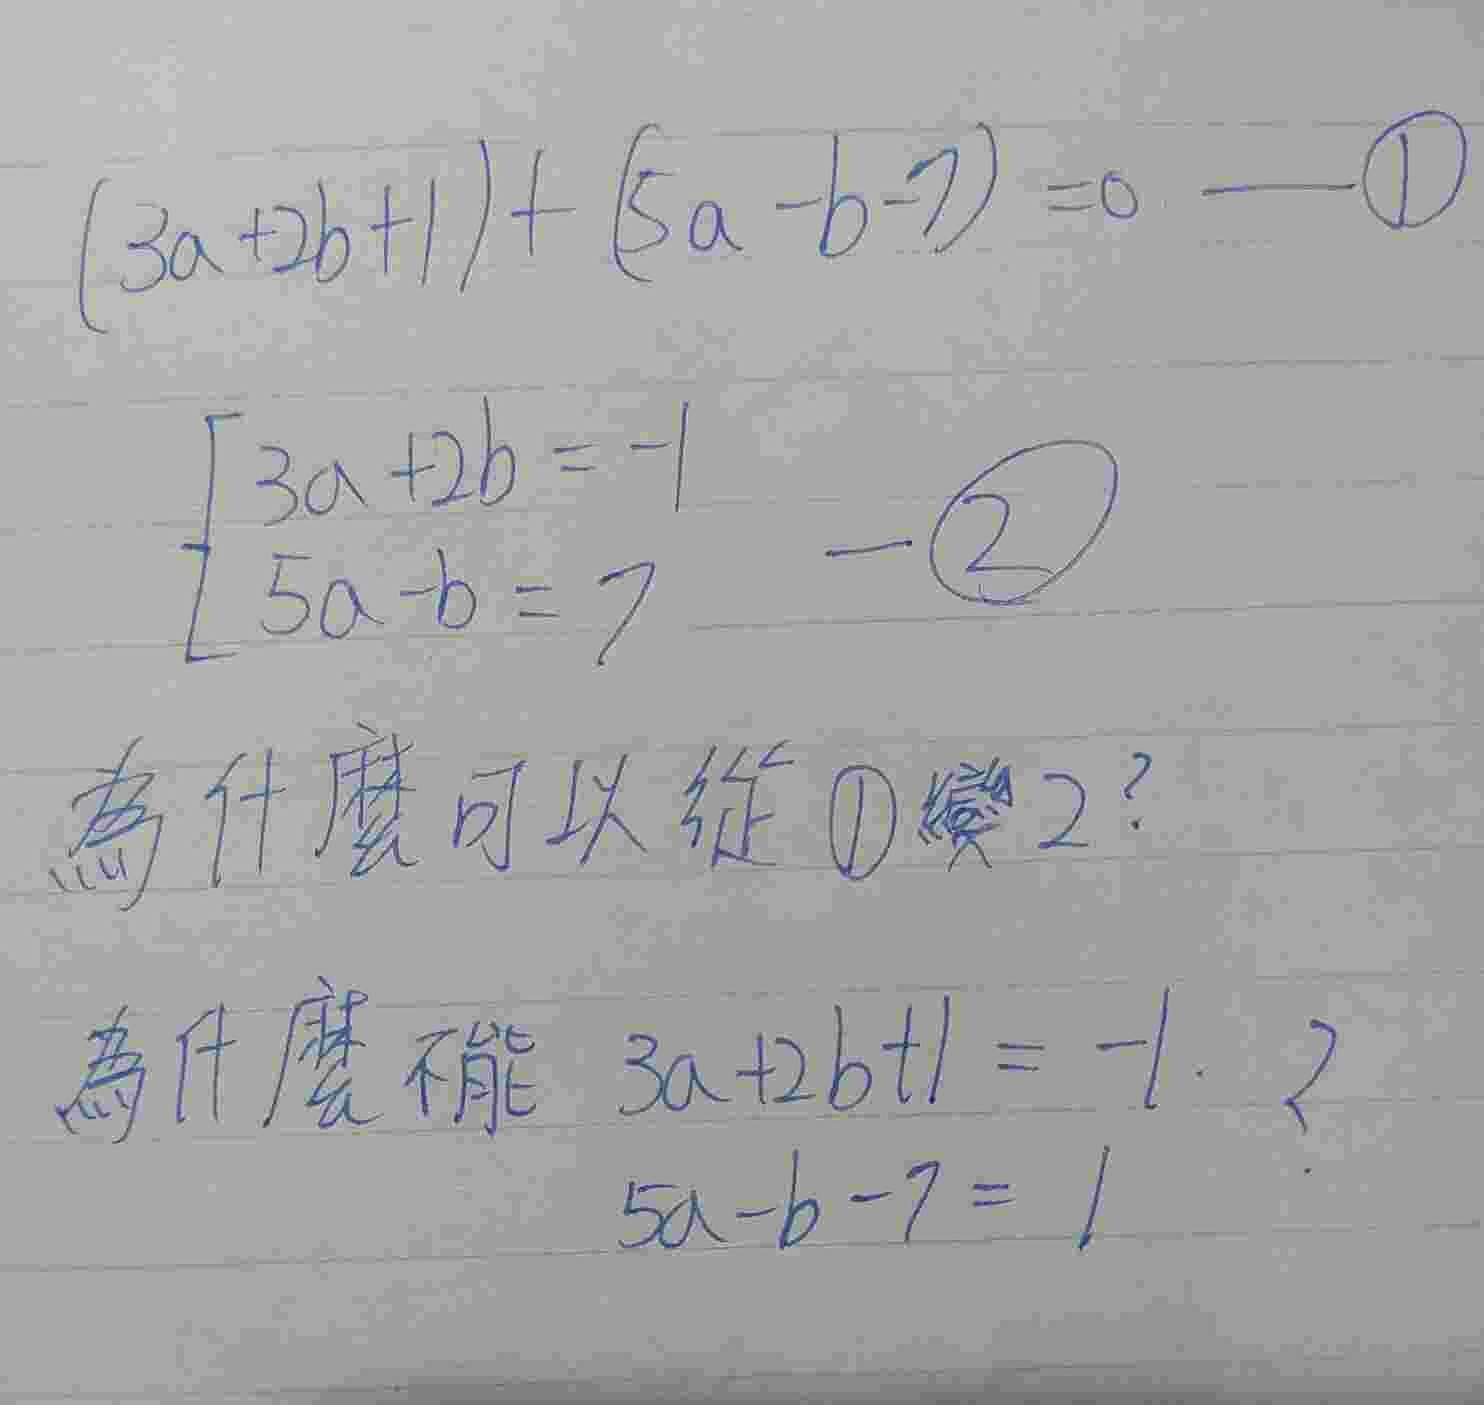 (3a+2b+1)+(5a-b-7)=0 —①
3a+2b=-1
5a-b=7 —②
為什麼可以從①變2?
為什麼不能 3a+2b+1=-1.?
5a-b-7=1